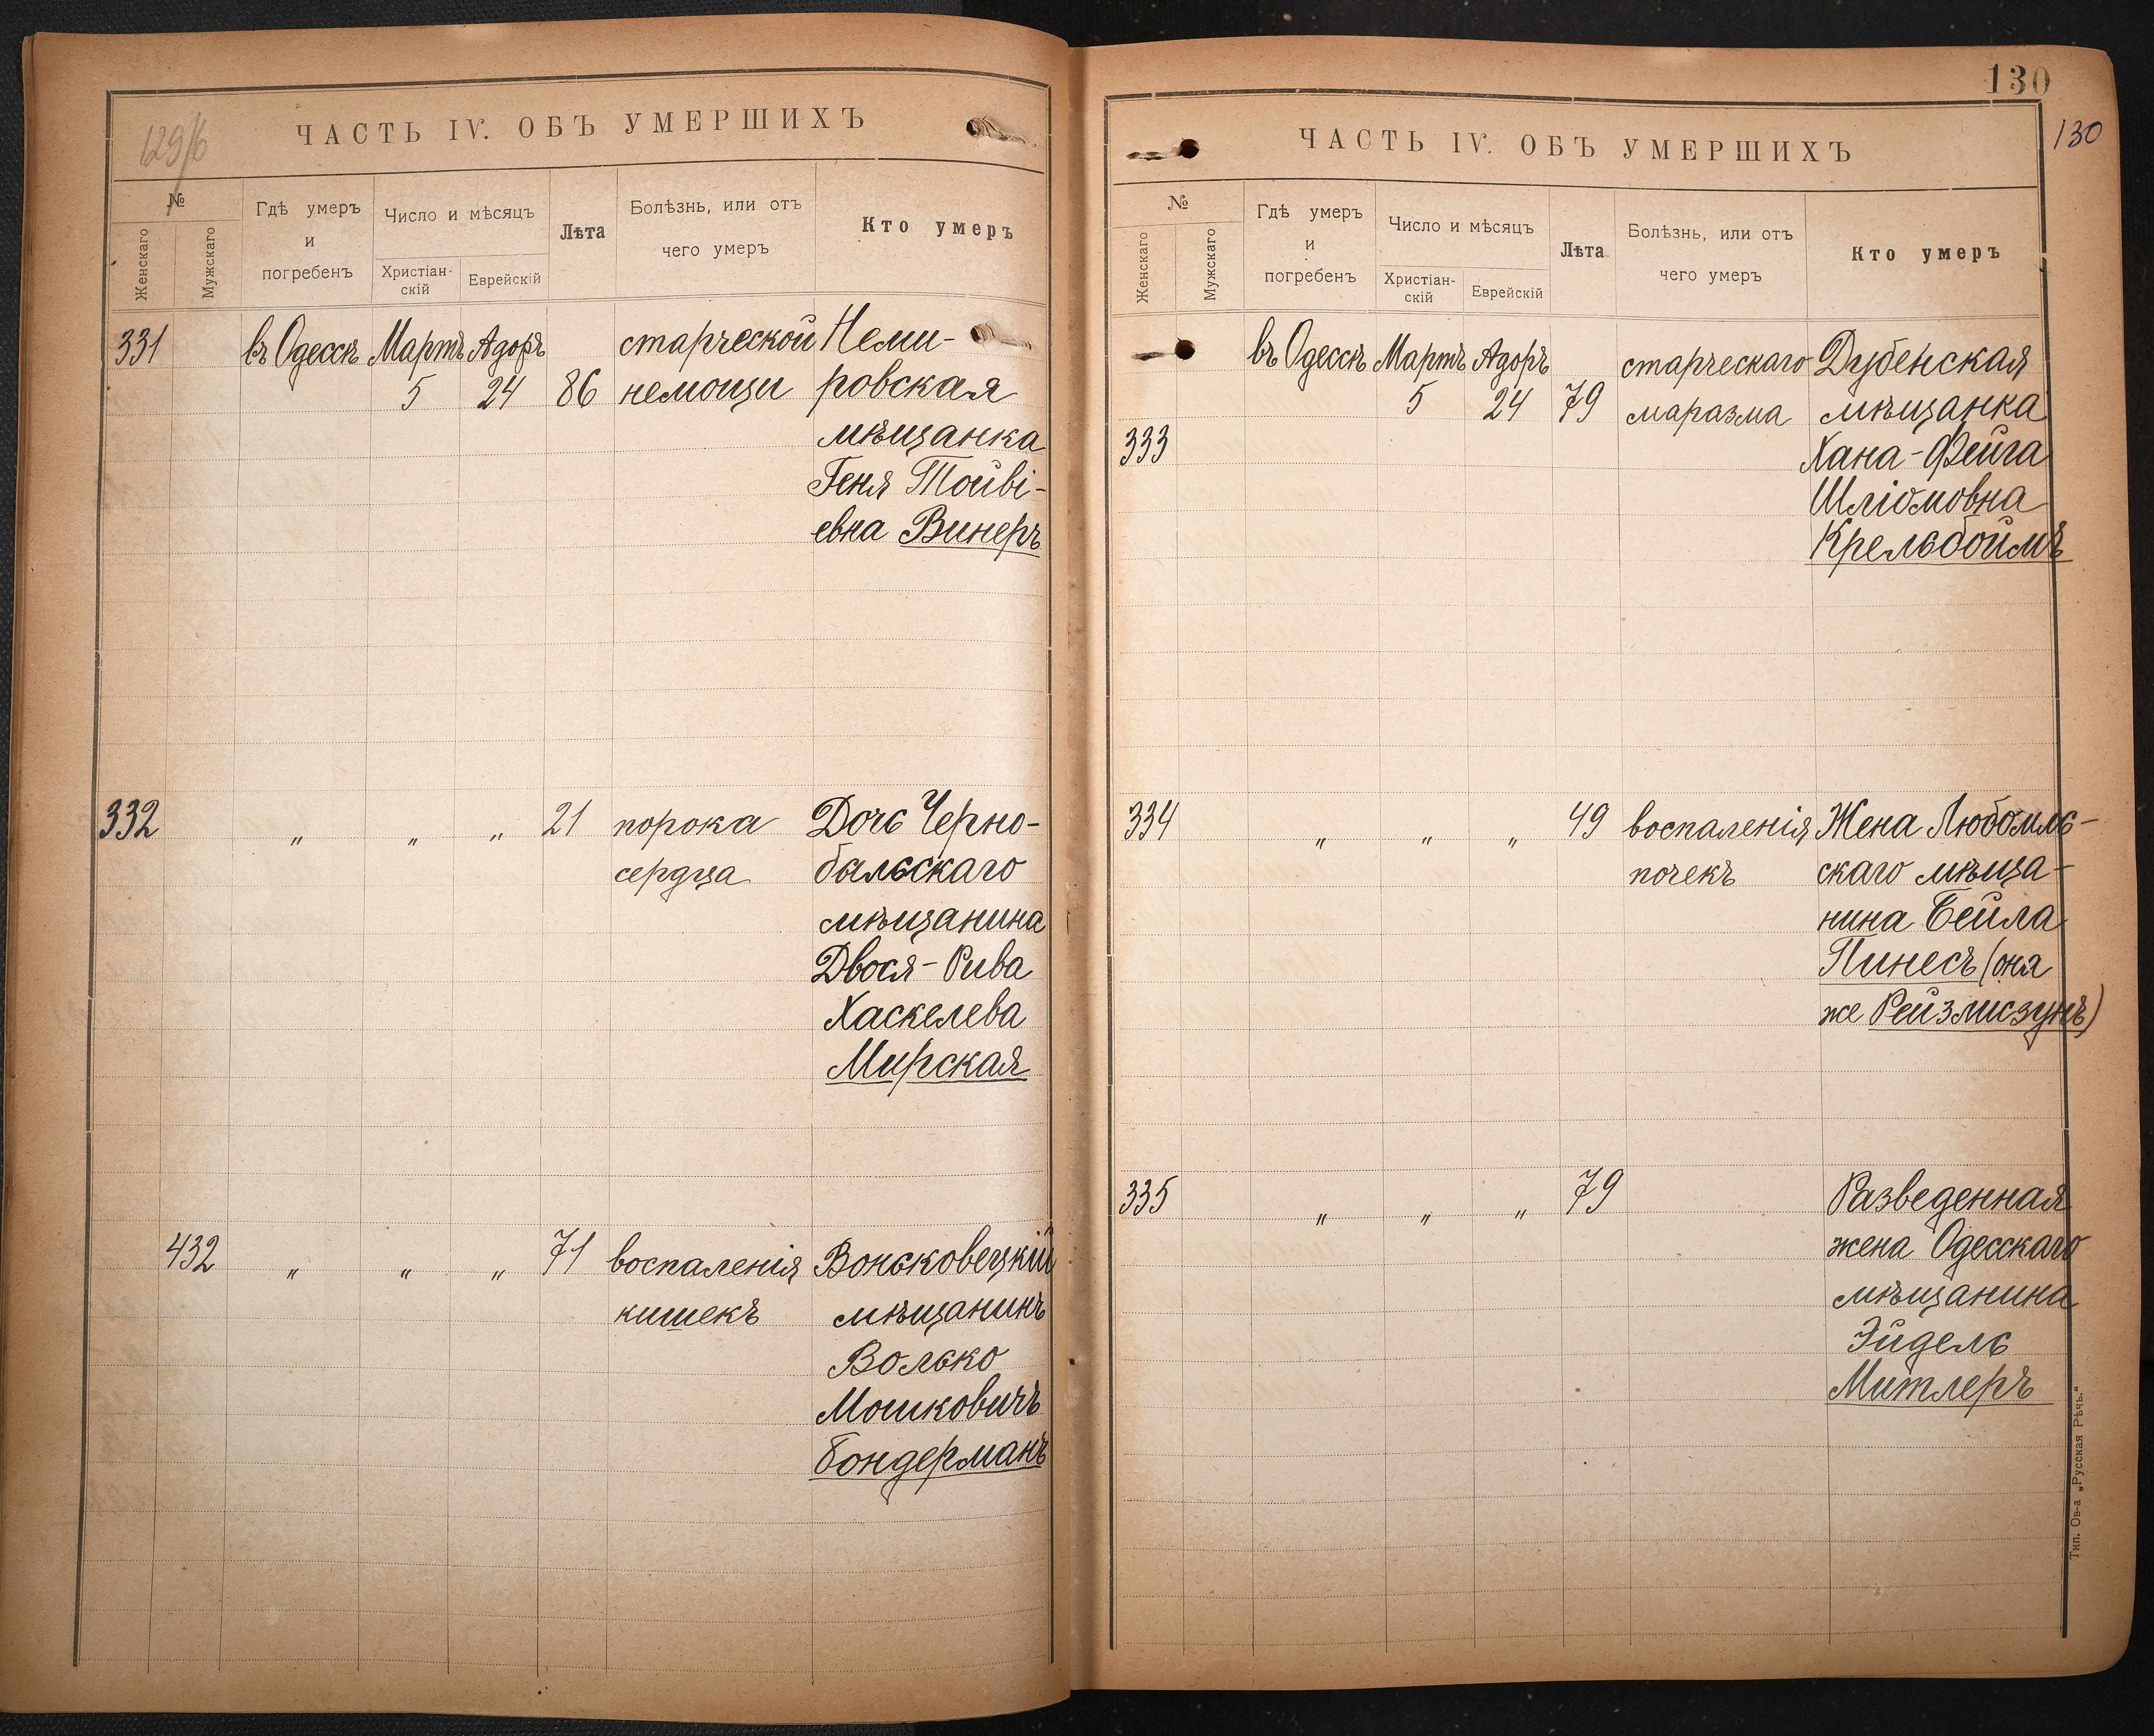 129/б
ЧАСТЬ IV. ОБЪ УМЕРШИХЪ
№
Женскаго
Мужскаго
Гдѣ умеръ
и
погребенъ
Число и мѣсяцъ
Христіан-
скій
Еврейскій
Лѣта
Болѣзнь, или отъ
чего умеръ
Кто умеръ
331 въ Одессѣ Мартъ Адоръ старческой Неми-
5 24 86 немощи ровская
мѣщанка
Геня Тойві-
евна Винеръ
332 " " " 21 порока Дочь Черно-
сердца быльскаго
мѣщанина
Двося-Рива
Хаскелева
Мирская
432 " " " 71 воспаленія Вонсковецкій
кишекъ мѣщанинъ
Волько
Мошковичъ
Бондерманъ
130
130
ЧАСТЬ IV. ОБЪ УМЕРШИХЪ
№
Женскаго
Мужскаго
Гдѣ умеръ
и
погребенъ
Число и мѣсяцъ
Христіан-
скій
Еврейскій
Лѣта
Болѣзнь, или отъ
чего умеръ
Кто умеръ
въ Одессѣ Мартъ Адоръ старческаго Дубенская
5 24 79 маразма мѣщанка
333 Хана-Фейга
Шліомовна
Крельбоймъ
334 " " " 49 воспаленія Жена Любомль-
почекъ скаго мѣща-
нина Бейла
Пинесъ (она
же Рейзмисзунъ)
335 " " " 79 Разведенная
жена Одесскаго
мѣщанина
Эйдель
Митлеръ
Тип. Ов-а „Русская Рѣчь."